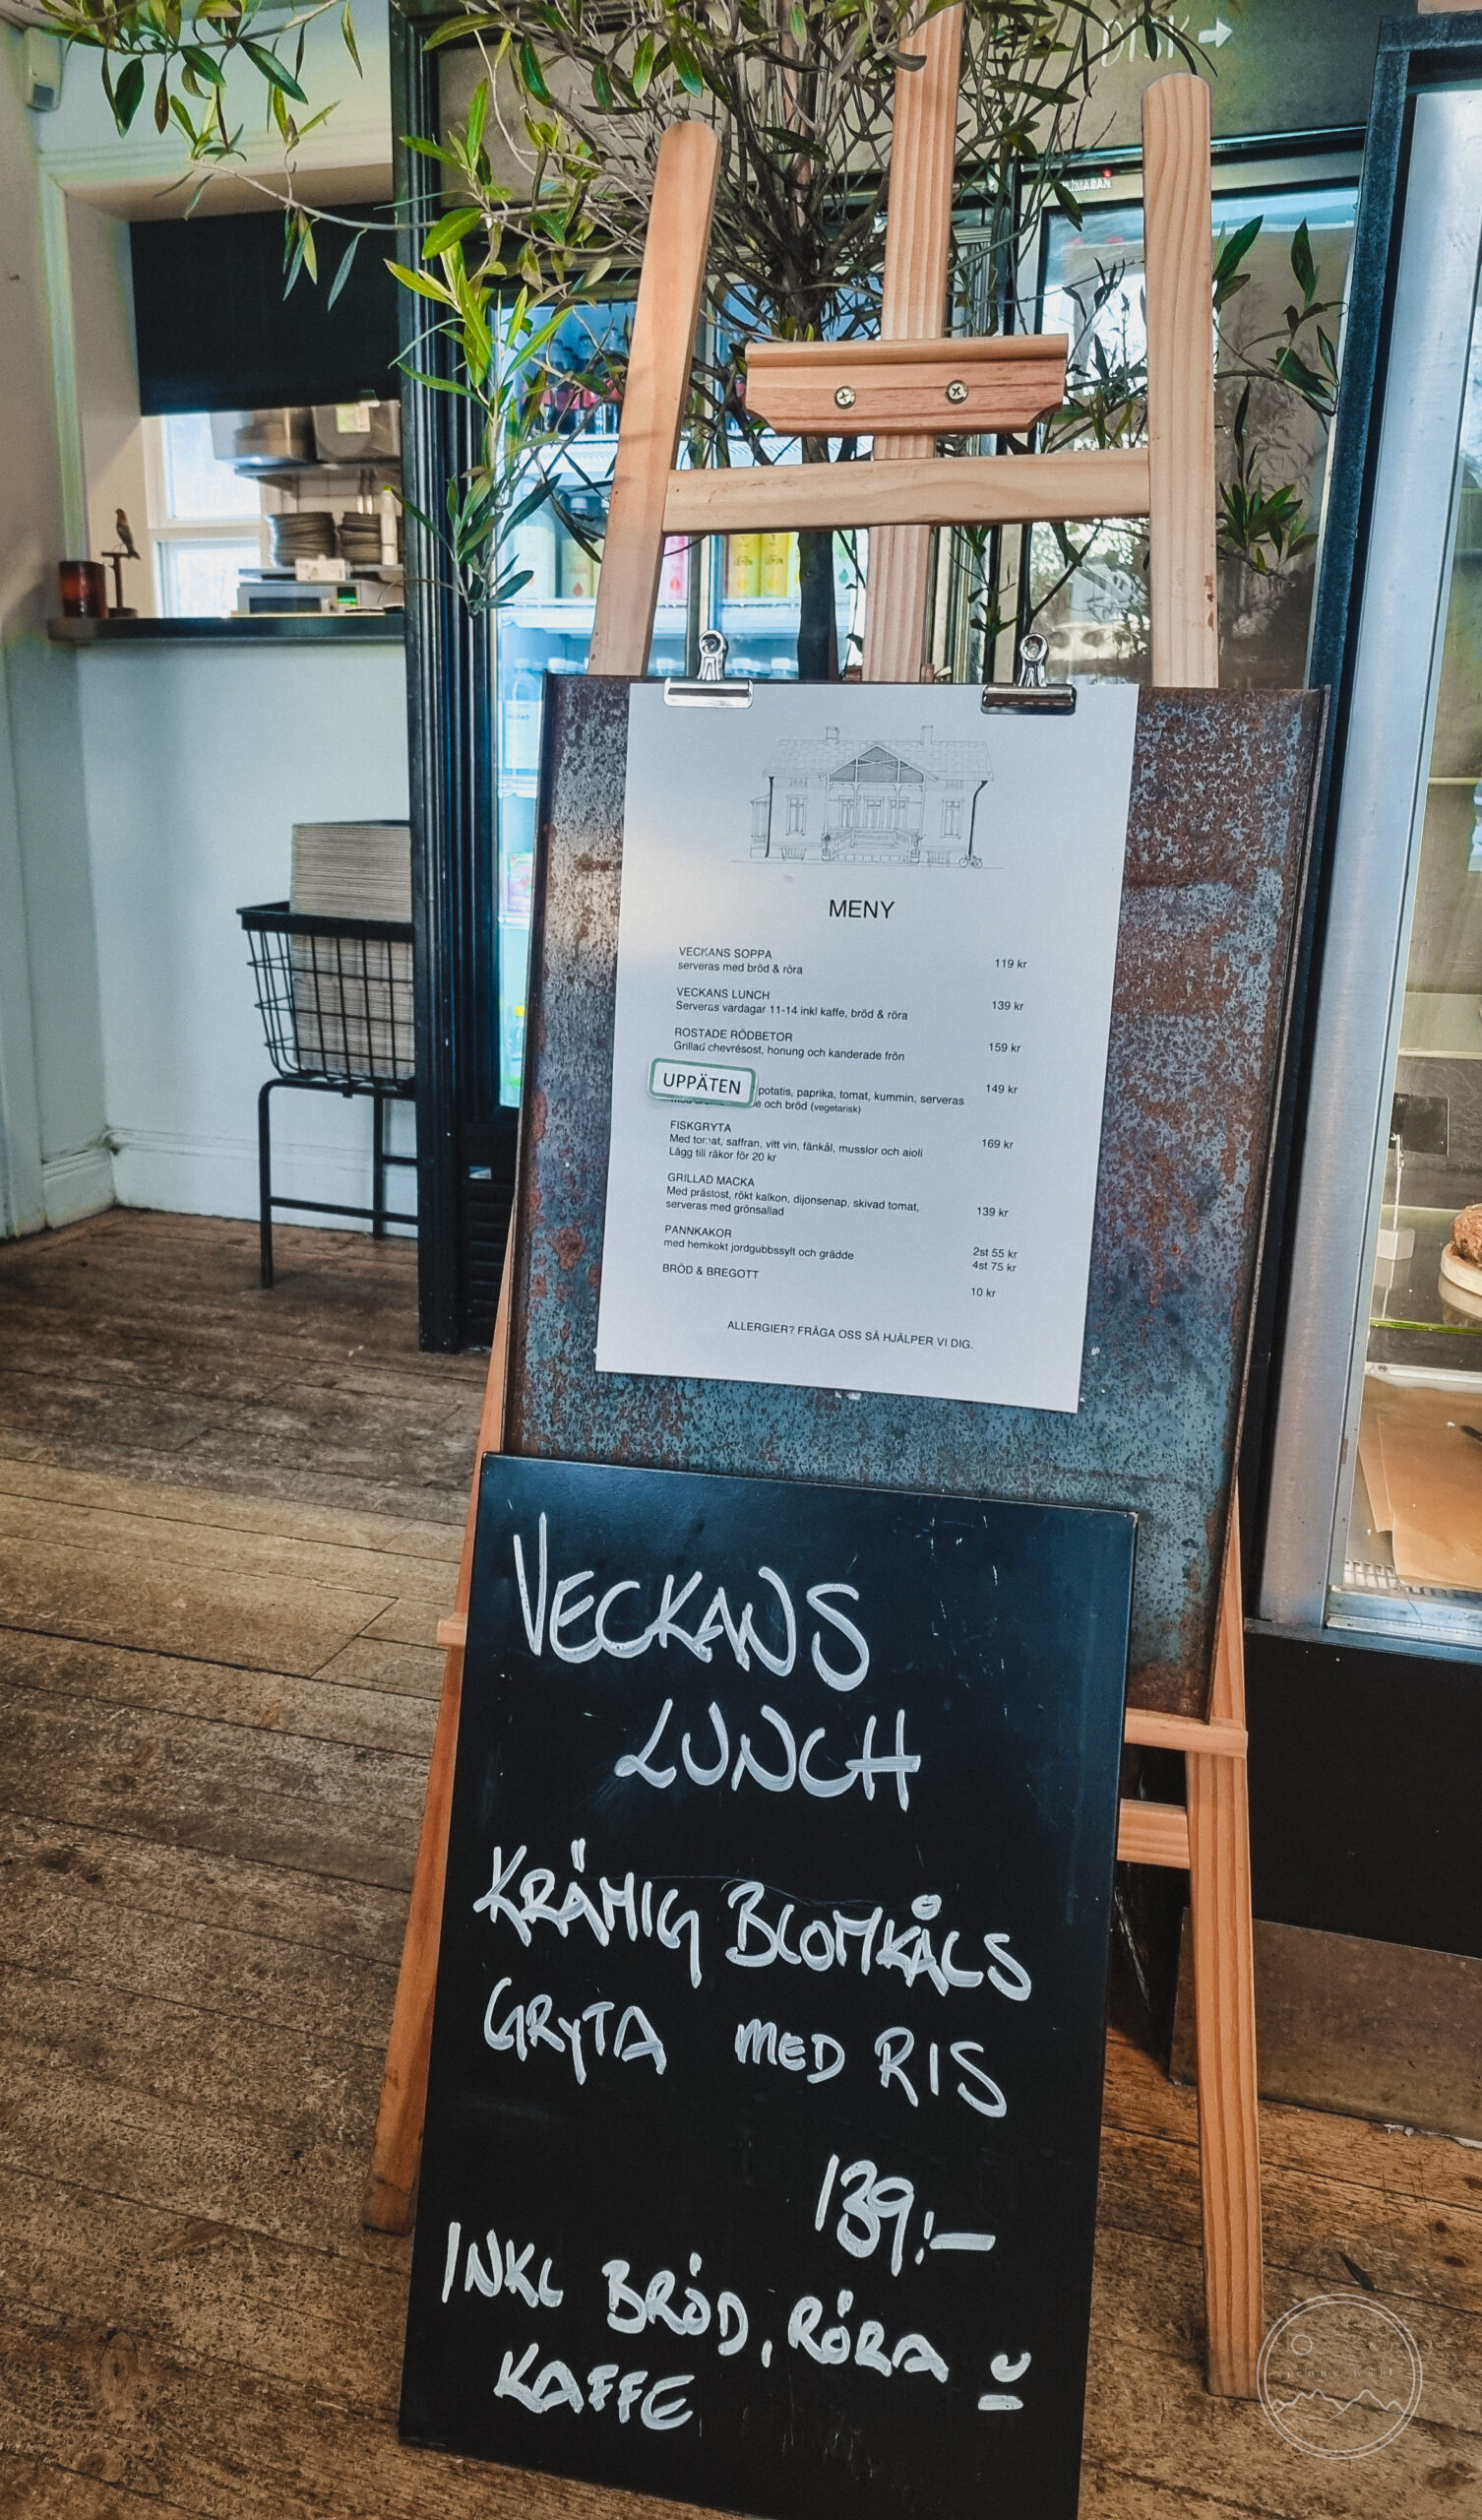 DISK →
MENY
VECKANS SOPPA
serveras med bröd & röra
119 kr
VECKANS LUNCH
Serveras vardagar 11-14 inkl kaffe, bröd & röra
139 kr
ROSTADE RÖDBETOR
Grillad chevréost, honung och kanderade frön
159 kr
UPPÄTEN
potatis, paprika, tomat, kummin, serveras
e och bröd (vegetarisk)
149 kr
FISKGRYTA
Med tomat, saffran, vitt vin, fänkål, musslor och aioli
Lägg till räkor för 20 kr
169 kr
GRILLAD MACKA
Med prästost, rökt kalkon, dijonsenap, skivad tomat,
serveras med grönsallad
139 kr
PANNKAKOR
med hemkokt jordgubbssylt och grädde
2st 55 kr
4st 75 kr
BRÖD & BREGOTT
10 kr
ALLERGIER? FRÅGA OSS SÅ HJÄLPER VI DIG.
VECKANS
LUNCH
KRÄMIG BLOMKÅLS
GRYTA MED RIS
139:-
INKL BRÖD, RÖRA &
KAFFE